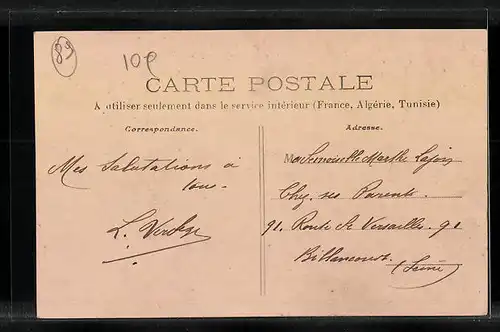 89
10e
CARTE POSTALE
A utiliser seulement dans le service intérieur (France, Algérie, Tunisie)
Correspondance.
Adresse.
Mes Salutations à
tous
Mademoiselle Marthe
Chez ses Parents
91. Route de Versailles. 91
Billancourt
(Seine)